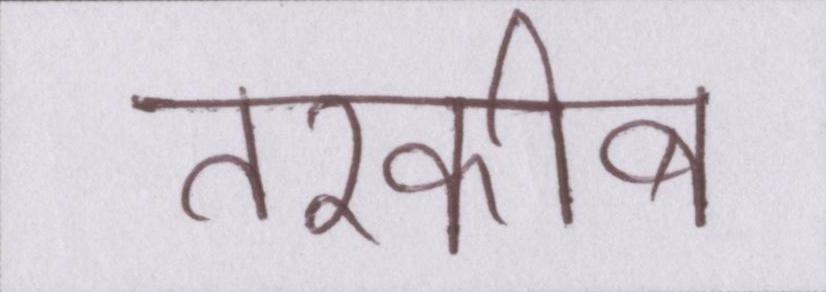 तरकीब